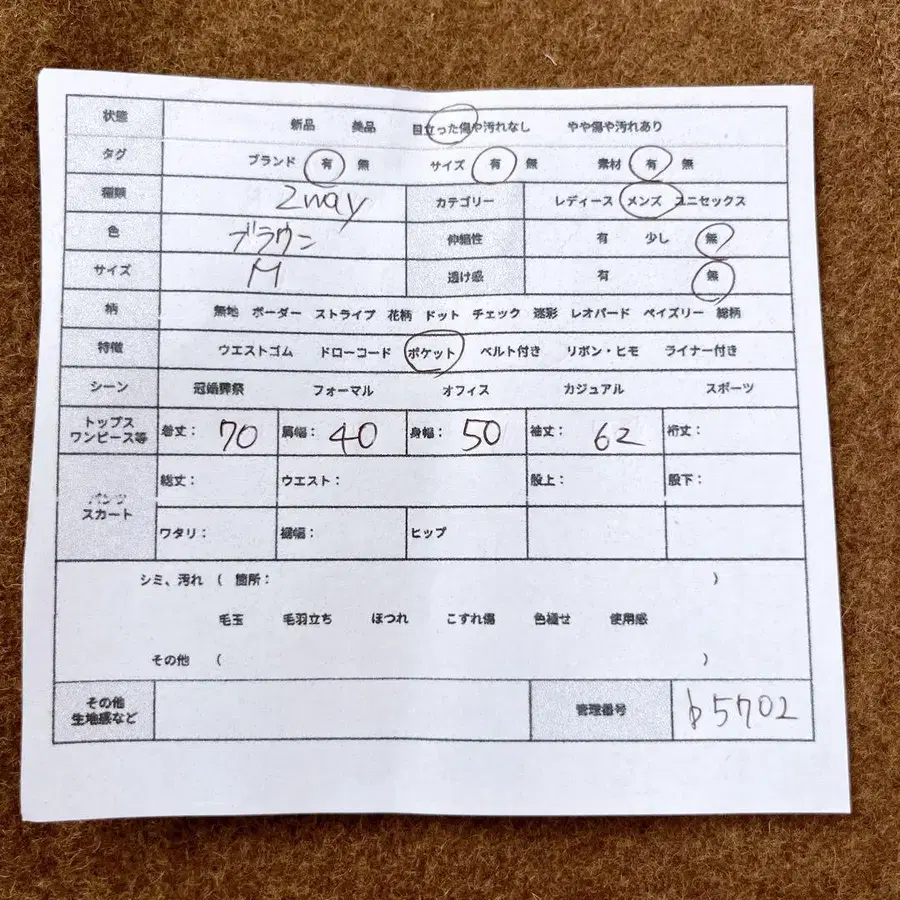 状態 新品 美品 目立った傷や汚れなし やや傷や汚れあり
タグ ブランド 有 無 サイズ 有 無 素材 有 無
種類 2way カテゴリー レディース メンズ ユニセックス
色 ブラウン 伸縮性 有 少し 無
サイズ M 透け感 有 無
柄 無地 ボーダー ストライプ 花柄 ドット チェック 迷彩 レオパード ペイズリー 総柄
特徴 ウエストゴム ドローコード ポケット ベルト付き リボン・ヒモ ライナー付き
シーン 冠婚葬祭 フォーマル オフィス カジュアル スポーツ
トップス
ワンピース等 着丈: 70 肩幅: 40 身幅: 50 袖丈: 62 裄丈:
総丈: ウエスト: 股上: 股下:
パンツ
スカート
ワタリ: 裾幅: ヒップ
シミ、汚れ ( 箇所: )
毛玉 毛羽立ち ほつれ こすれ傷 色褪せ 使用感
その他 ( )
その他
生地感など 管理番号 b5702